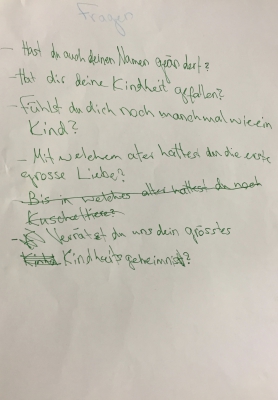 Fragen
- Hast du auch deinen Namen geändert?
- Hat dir deine Kindheit gefallen?
- Fühlst du dich noch manchmal wie ein
Kind?
- Mit welchem alter hattest du die erste
grosse Liebe?
- Bis in welches alter hattest du noch
Kuscheltiere?
- Verrätst du uns dein grösstes
Kindheitsgeheimnis?